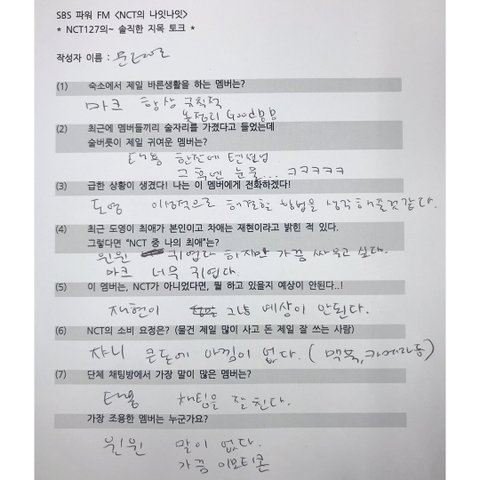 SBS 파워 FM <NCT의 나잇나잇>
* NCT127의~ 솔직한 지목 토크 *
작성자 이름 : 문태일
(1) 숙소에서 제일 바른생활을 하는 멤버는?
마크 항상 규칙적
Good
(2) 최근에 멤버들끼리 술자리를 가졌다고 들었는데
술버릇이 제일 귀여운 멤버는?
태용 한잔에 텐션업
그 후엔 눈물... ㅋㅋㅋㅋㅋ
(3) 급한 상황이 생겼다! 나는 이 멤버에게 전화하겠다!
도영 이성적으로 해결할 방법을 생각해줄것 같다.
(4) 최근 도영이 최애가 본인이고 차애는 재현이라고 밝힌 적 있다.
그렇다면 "NCT 중 나의 최애"는?
윈윈 귀엽다 하지만 가끔 싸우고 싶다.
마크 너무 귀엽다.
(5) 이 멤버는, NCT가 아니었다면, 뭘 하고 있을지 예상이 안된다..!
재현이 그냥 예상이 안된다.
(6) NCT의 소비 요정은? (물건 제일 많이 사고 돈 제일 잘 쓰는 사람)
쟈니 큰돈에 아낌이 없다. (맥북, 카메라등)
(7) 단체 채팅방에서 가장 말이 많은 멤버는?
태용 채팅을 잘 친다.
가장 조용한 멤버는 누군가요?
윈윈 말이 없다.
가끔 이모티콘